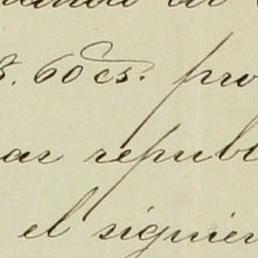 $. 60 cs. pro
ar republ
el siguien